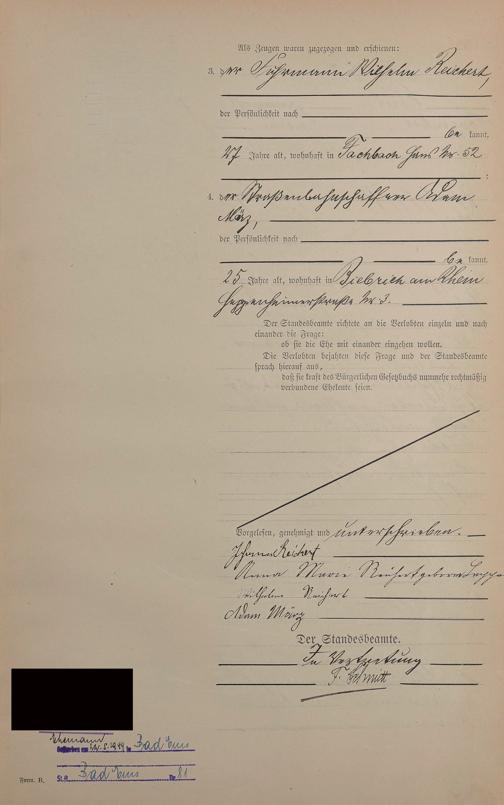 Als Zeugen waren zugezogen und erschienen:
3. der Fuhrmann Wilhelm Reichert,
der Persönlichkeit nach
bekannt,
27 Jahre alt, wohnhaft in Fachbach Haus Nr. 52
;
4. der Straßenbahnschaffner Adam
März,
der Persönlichkeit nach
bekannt,
25 Jahre alt, wohnhaft in Biebrich am Rhein
Heppenheimerstraße Nr. 3.
Der Standesbeamte richtete an die Verlobten einzeln und nach
einander die Frage:
ob sie die Ehe mit einander eingehen wollen.
Die Verlobten bejahten diese Frage und der Standesbeamte
sprach hierauf aus,
daß sie kraft des Bürgerlichen Gesetzbuchs nunmehr rechtmäßig
verbundene Eheleute seien.
Vorgelesen, genehmigt und unterschrieben.
Johann Reichert
Anna Marie Reichert geborene
Wilhelm Reichert
Adam März
Der Standesbeamte.
In Vertretung
F. Schmitt
Ehemann
Gestorben am in Bad Ems
St.A. Bad Ems Nr. 81
Form. B.